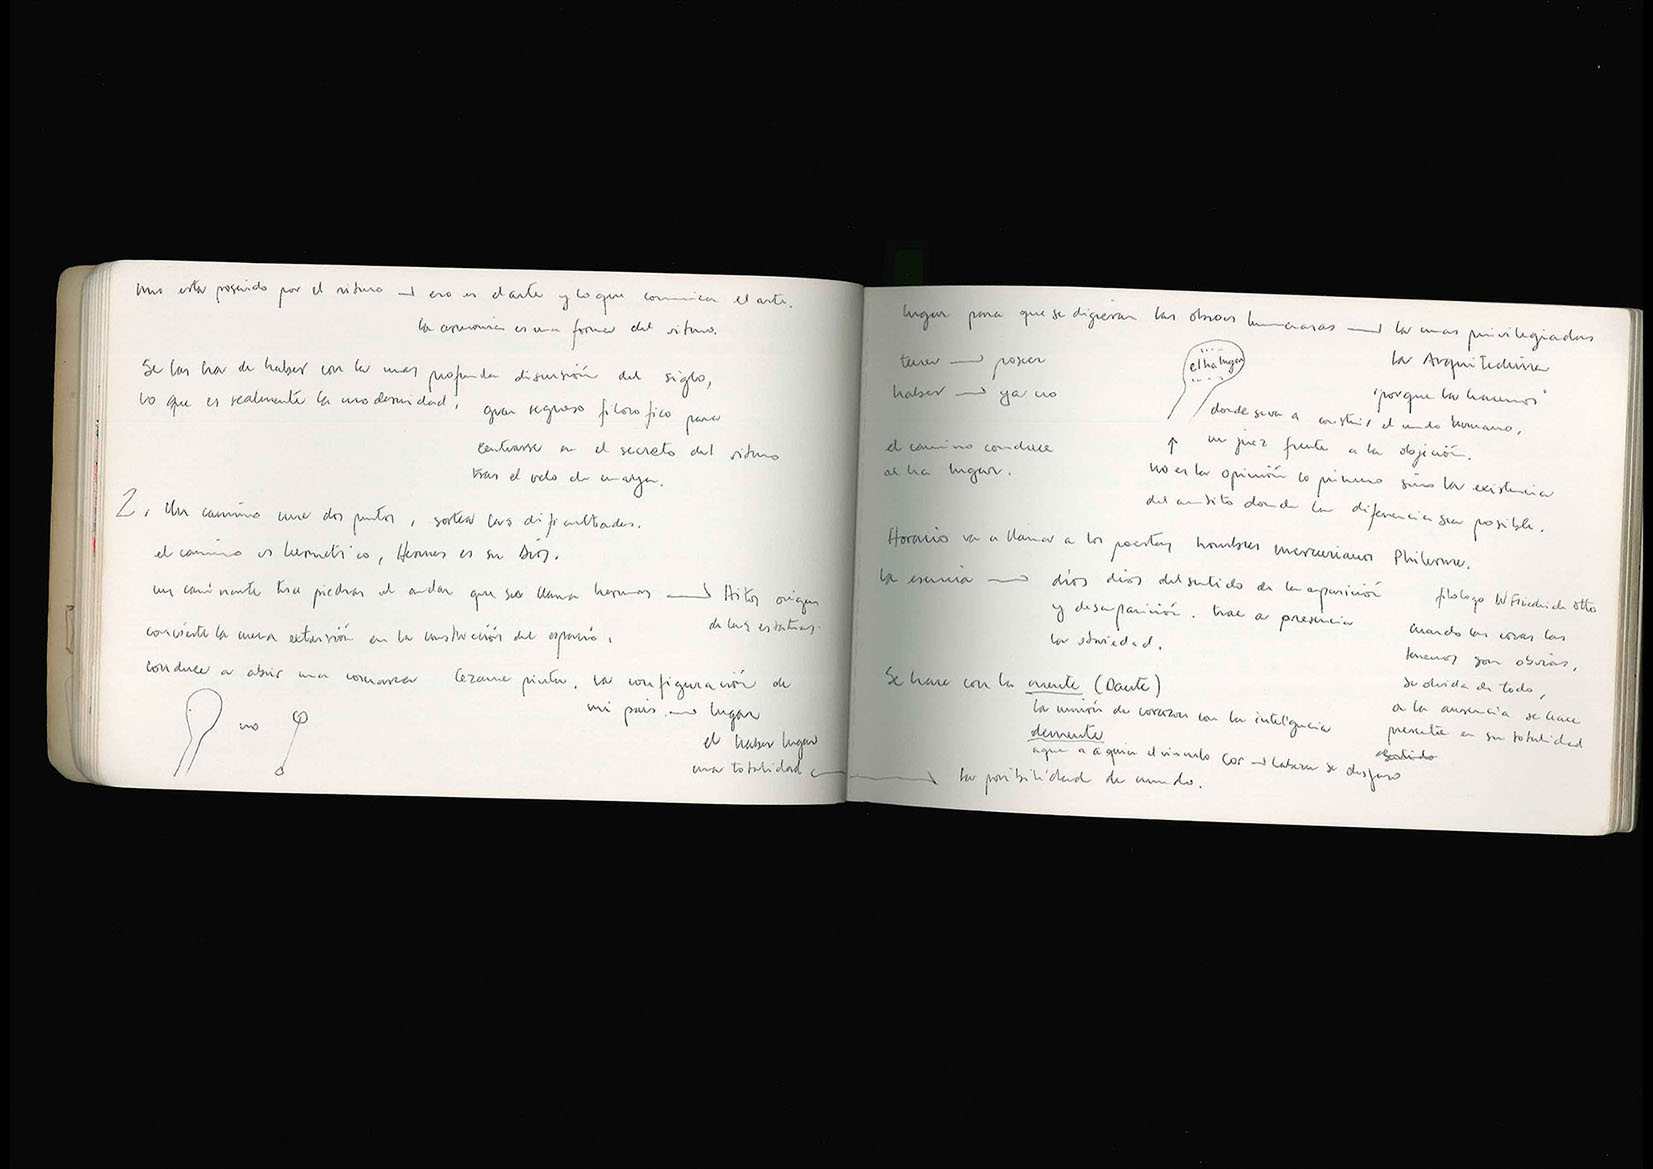 uno esta poseido por el ritmo → eso es el arte y lo que comunica el arte.
la armonia es una forma del ritmo.
Se las ha de haber con la mas profunda discusión del siglo,
lo que es realmente la modernidad,
gran regreso filosofico para
centrarse en el secreto del ritmo
tras el velo de maya.
2. Un camino une dos puntos, sortea las dificultades.
el camino es hermetico, Hermes es su Dios.
un caminante tira piedras al andar que se llama hermas → Hitos origen
de las estatuas.
convierte la mera extensión en la construcción del espacio.
conduce a abrir una comarca Cezanne pinta. la configuración de
mi pais → lugar
el haber lugar
una totalidad
no
lugar para que se digieran las obras humanas → la mas privilegiada
la Arquitectura
"porque la hacemos"
tener → poseer
haber → ya no
el ha lugar
donde se va a construir el mundo humano,
un juez frente a la objeción.
el camino conduce
al ha lugar.
no es la opinión lo primero sino la existencia
del ambito donde la diferencia sea posible.
Horacio va a llamar a los poetas hombres mercurianos
la esencia → dios dios del sentido de la aparición
y desaparición. trae a presencia
la obviedad.
filologo W Friedrich Otto
cuando las cosas las
tenemos son obvias,
se olvida de todo,
a la ausencia se hace
presente en su totalidad
Se hace con la mente (Dante)
la unión de corazon con la inteligencia
demente
aque a quien el vinculo cor → se
la posibilidad de mundo.